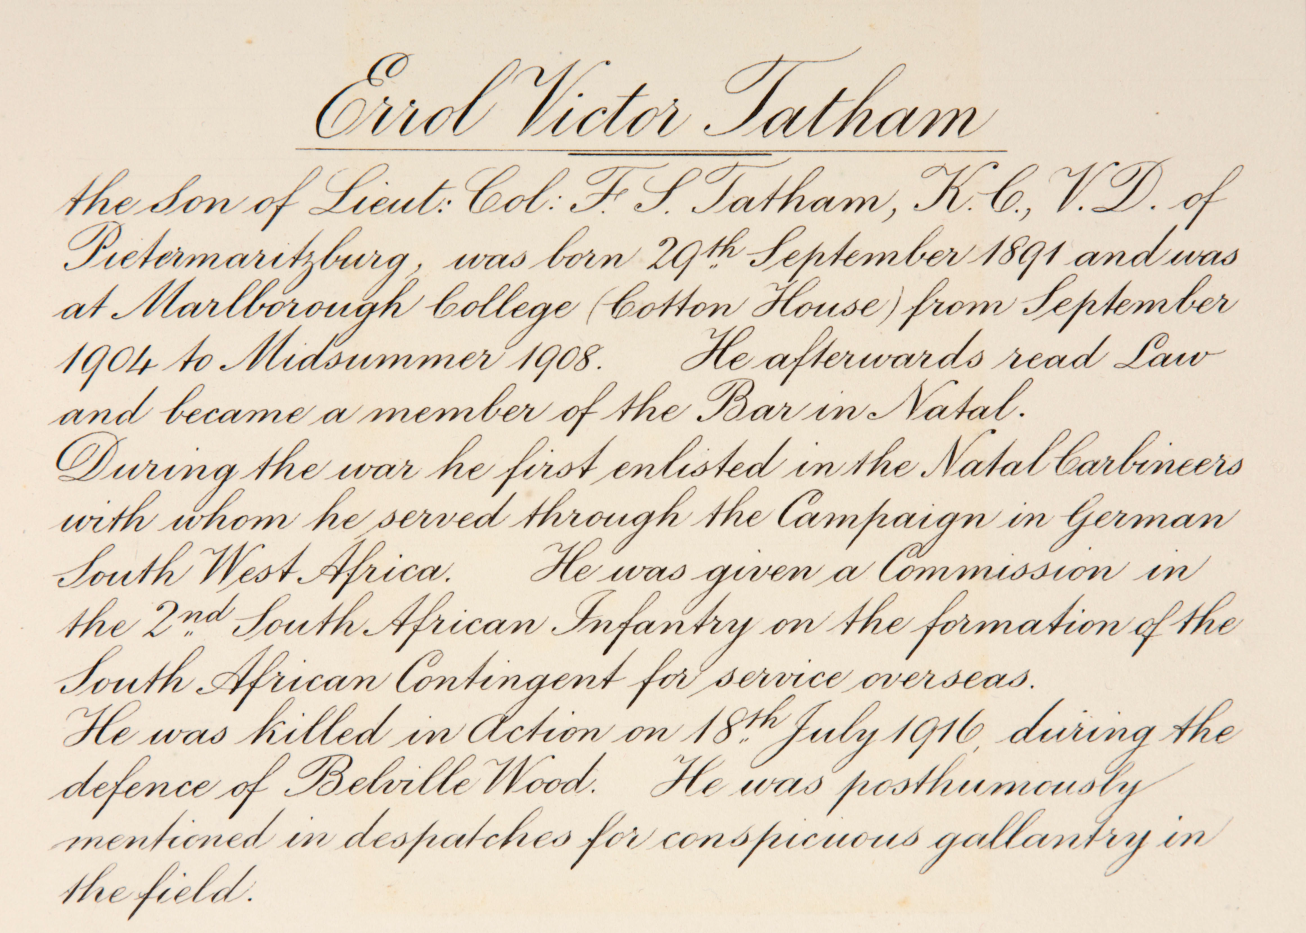 Errol Victor Tatham
the Son of Lieut: Col: F. S. Tatham, K.C., V.D. of
Pietermaritzburg, was born 29th September 1891 and was
at Marlborough College (Cotton House) from September
1904 to Midsummer 1908. He afterwards read Law
and became a member of the Bar in Natal.
During the war he first enlisted in the Natal Carbineers
with whom he served through the Campaign in German
South West Africa. He was given a Commission in
the 2nd South African Infantry on the formation of the
South African Contingent for service overseas.
He was killed in Action on 18th July 1916, during the
defence of Belville Wood. He was posthumously
mentioned in despatches for conspicuous gallantry in
the field.